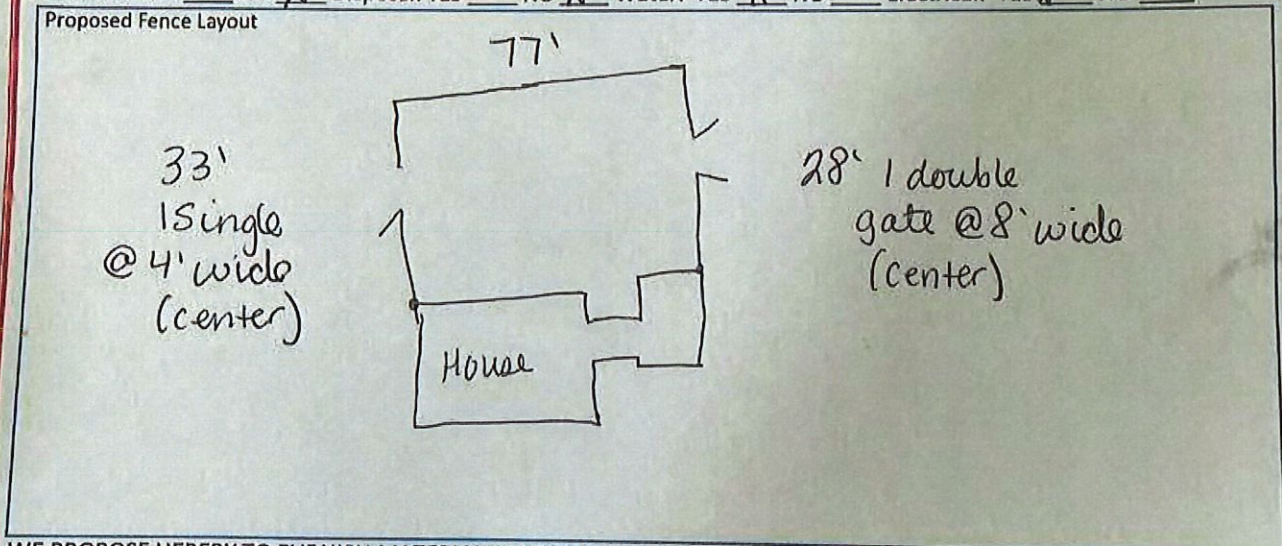 Proposed Fence Layout
77'
33'
1 Single
@ 4' wide
(center)
28' 1 double
gate @ 8' wide
(center)
House